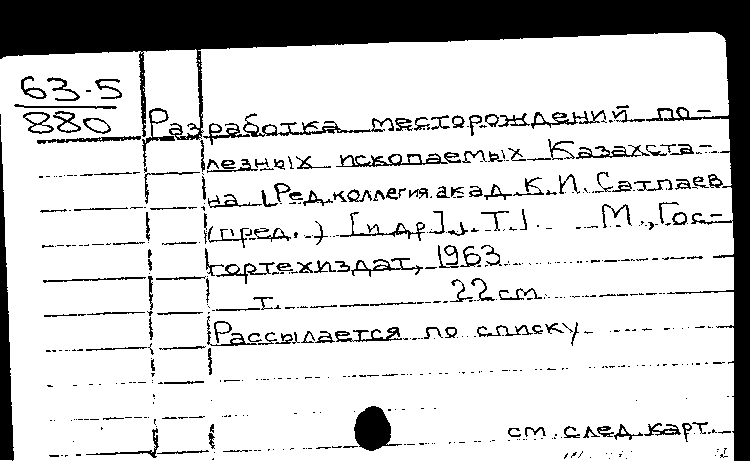 63-5
880
Разработка месторождений по-
лезных ископаемых Казахста-
на [Ред.коллегия:акад. К.И. Сатпаев
(пред.) [и др]. Т.1. М., Гос-
гортехиздат, 1963
т. 22 см.
Рассылается по списку
см. след. карт.